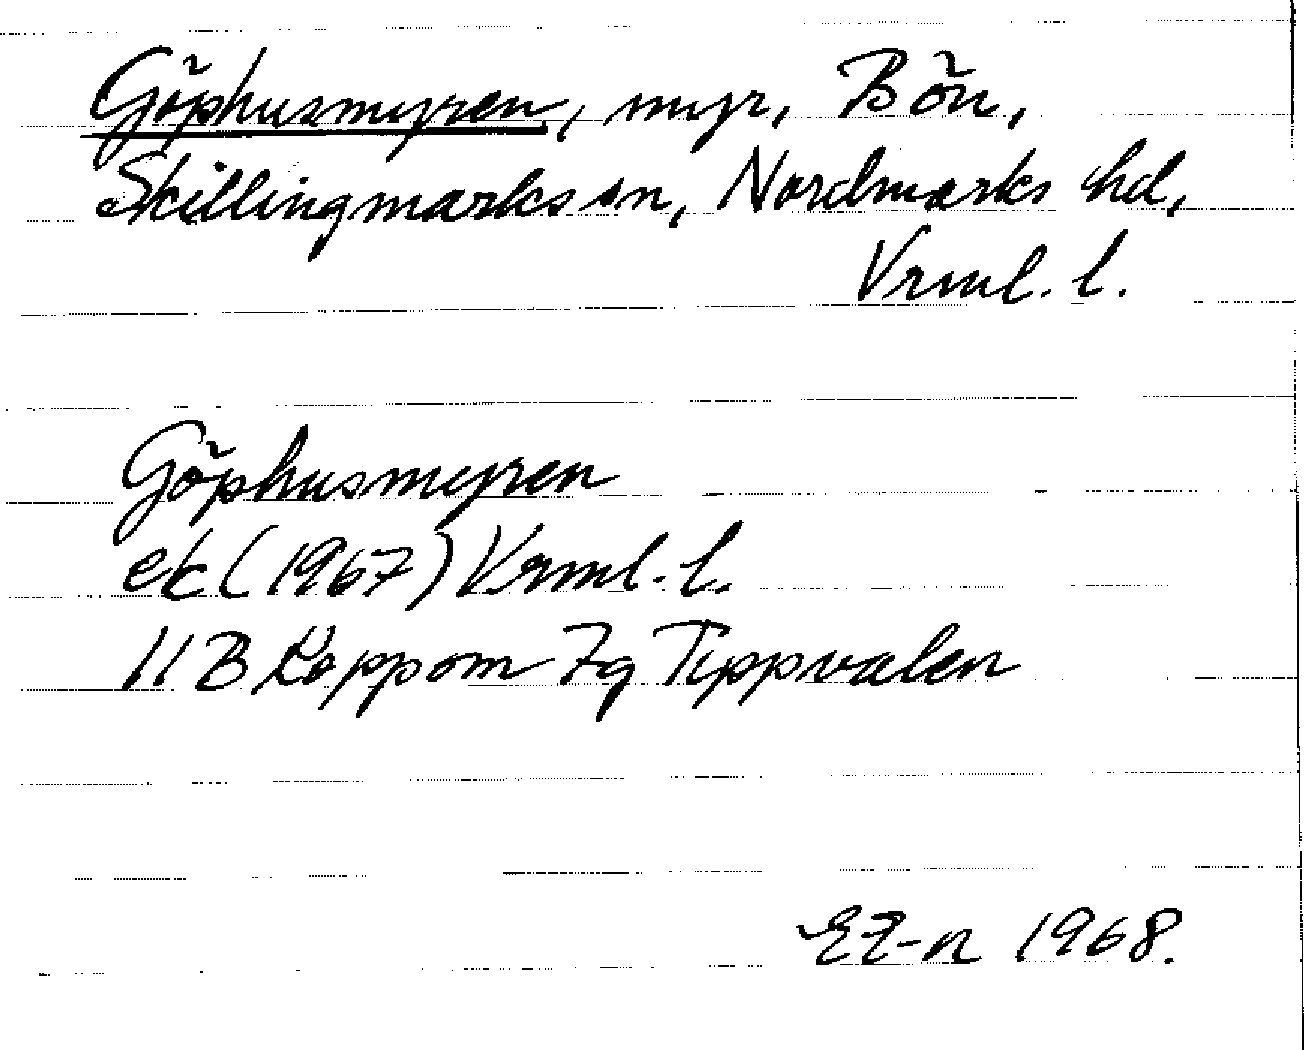 Göphusmyren, myr, Bön,
Skillingmarks sn, Nordmarks hd,
Vrml. l.
Göphusmyren
ek (1967) Vrml. l.
11B Koppom 7g Tippvalen
EZ-n 1968.